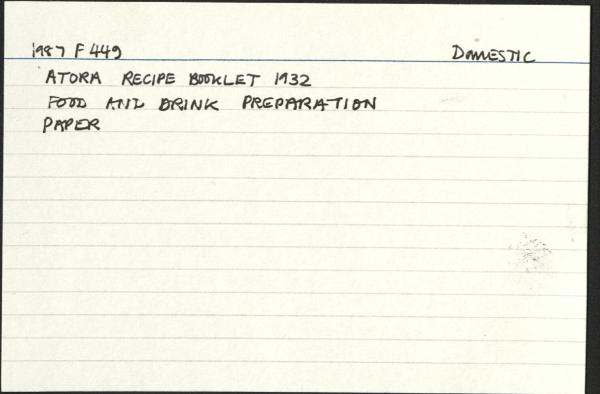 1987 F 449 DOMESTIC
ATORA RECIPE BOOKLET 1932
FOOD AND DRINK PREPARATION
PAPER